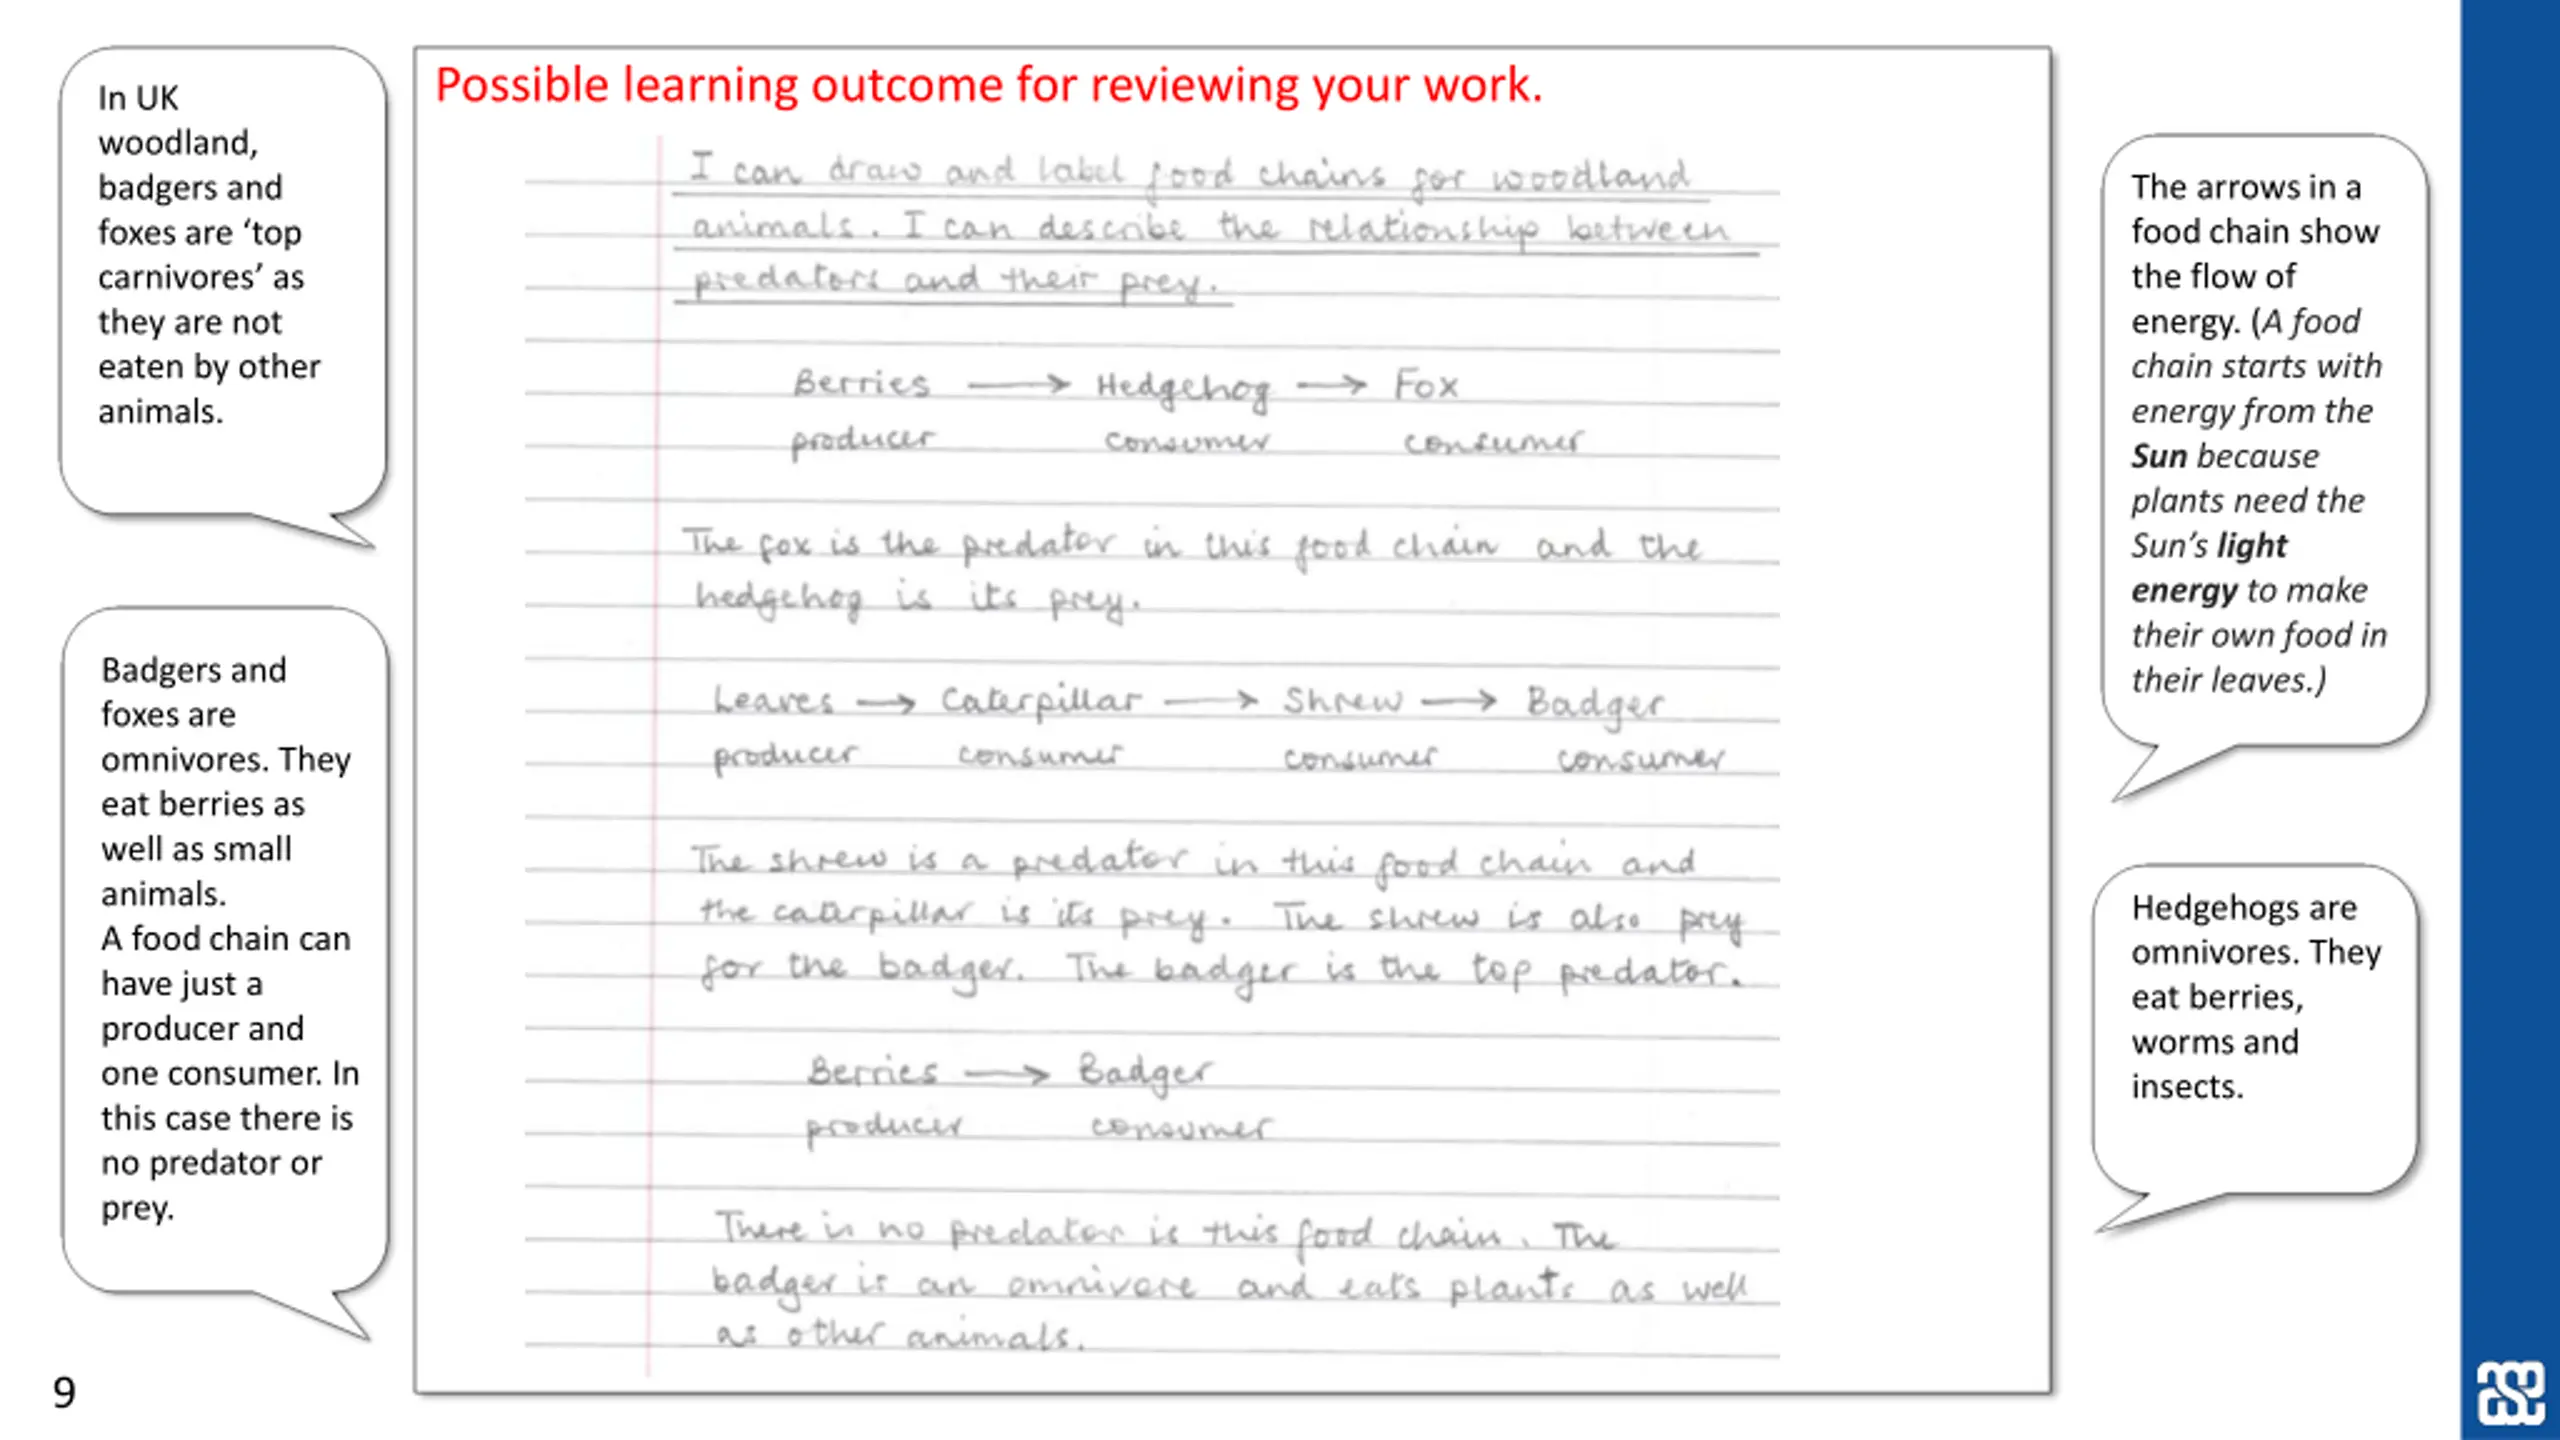 In UK
woodland,
badgers and
foxes are ‘top
carnivores’ as
they are not
eaten by other
animals.
Badgers and
foxes are
omnivores. They
eat berries as
well as small
animals.
A food chain can
have just a
producer and
one consumer. In
this case there is
no predator or
prey.
9
Possible learning outcome for reviewing your work.
I can draw and label food chains for woodland
animals. I can describe the relationship between
predators and their prey.
Berries → Hedgehog → Fox
producer consumer consumer
The fox is the predator in this food chain and the
hedgehog is its prey.
Leaves → Caterpillar → Shrew → Badger
producer consumer consumer consumer
The shrew is a predator in this food chain and
the caterpillar is its prey. The shrew is also prey
for the badger. The badger is the top predator.
Berries → Badger
producer consumer
There is no predator is this food chain. The
badger is an omnivore and eats plants as well
as other animals.
The arrows in a
food chain show
the flow of
energy. (A food
chain starts with
energy from the
Sun because
plants need the
Sun’s light
energy to make
their own food in
their leaves.)
Hedgehogs are
omnivores. They
eat berries,
worms and
insects.
ase